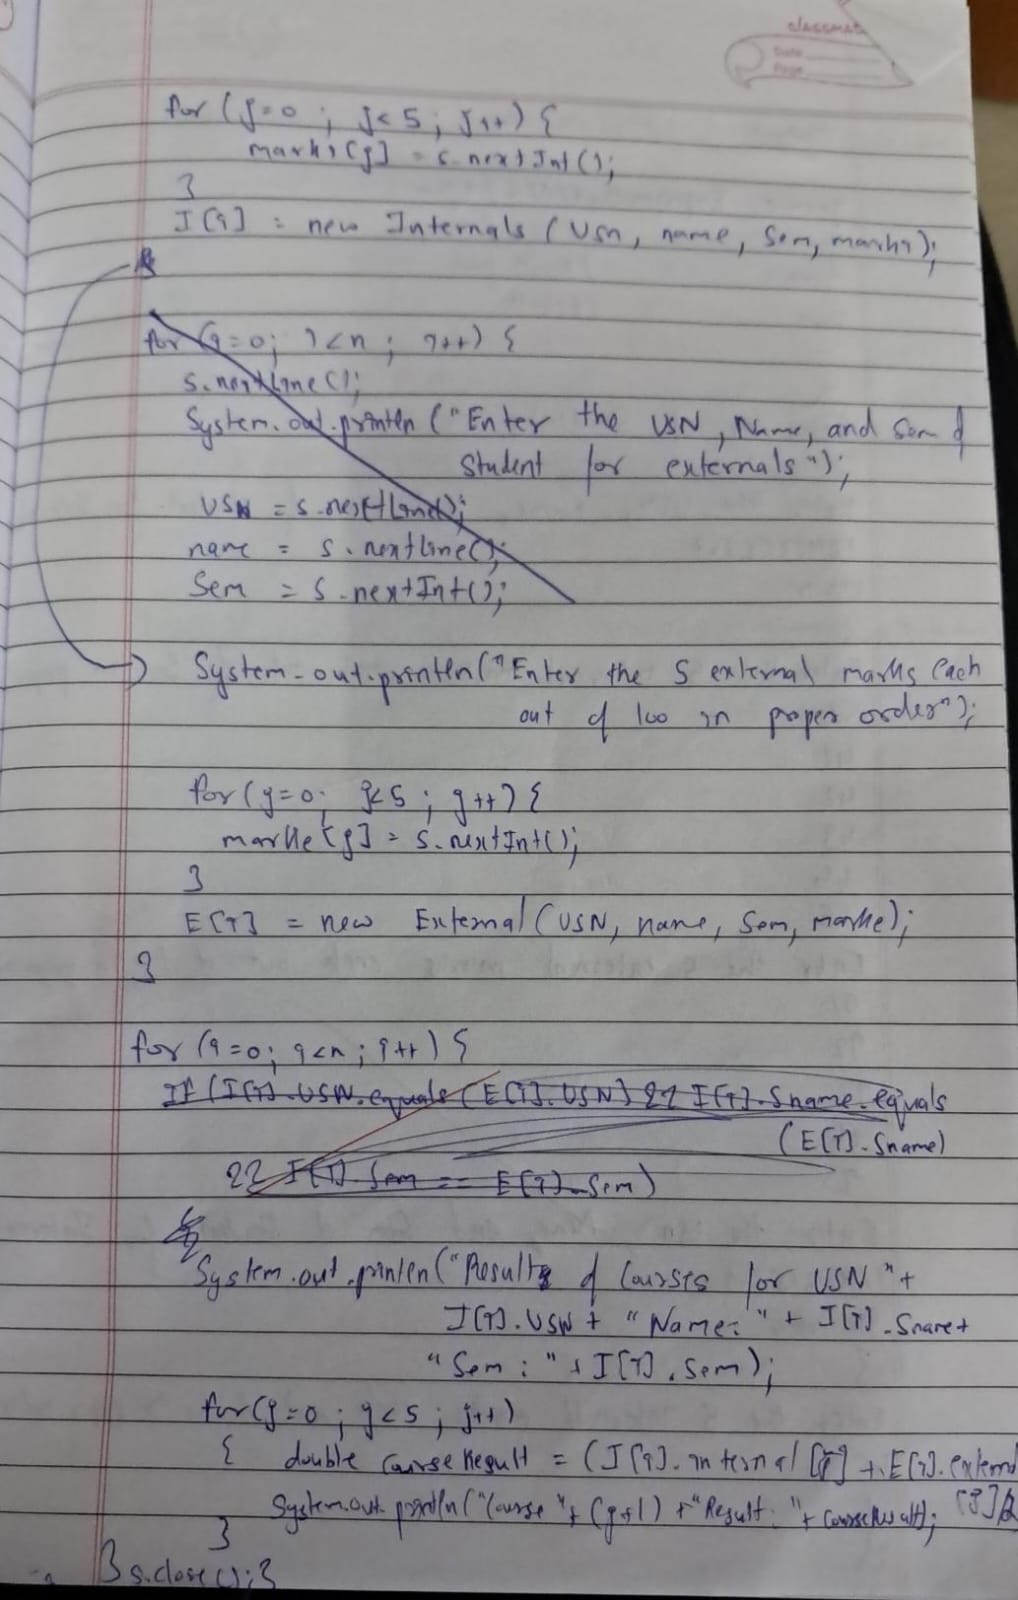 classmate
Date
Page
for (j=0 ; j<5 ; j++) {
marks[j] = s.nextInt();
}
I[i] = new Internals (usn, name, sem, marks);
for (i=0; i<n ; i++) {
s.nextLine();
System.out.println ("Enter the USN, Name, and Sem of
student for externals");
USN = s.nextLine();
name = s.nextline();
Sem = s.nextInt();
System.out.println("Enter the 5 external marks each
out of 100 in proper order");
for (j=0; j<5 ; j++) {
marke[j] = s.nextInt();
}
E[i] = new External (USN, name, Sem, marke);
}
for (i=0; i<n ; i++) {
If (I[i].USN.equals (E[i].USN) && I[i].Sname.equals
(E[i].Sname)
&& I[i].Sem == E[i].Sem)
System.out.println("Results of Courses for USN "+
I[i].USN + "Name: " + I[i].Sname+
"Sem : " + I[i].sem);
for(j=0 ; j<5 ; j++)
{ double courseResult = (I[i].internal[j] + E[i].external
System.out.println("Course "+ (j+1) + "Result: "+ courseResult); [j]/2
}
} s.close();}